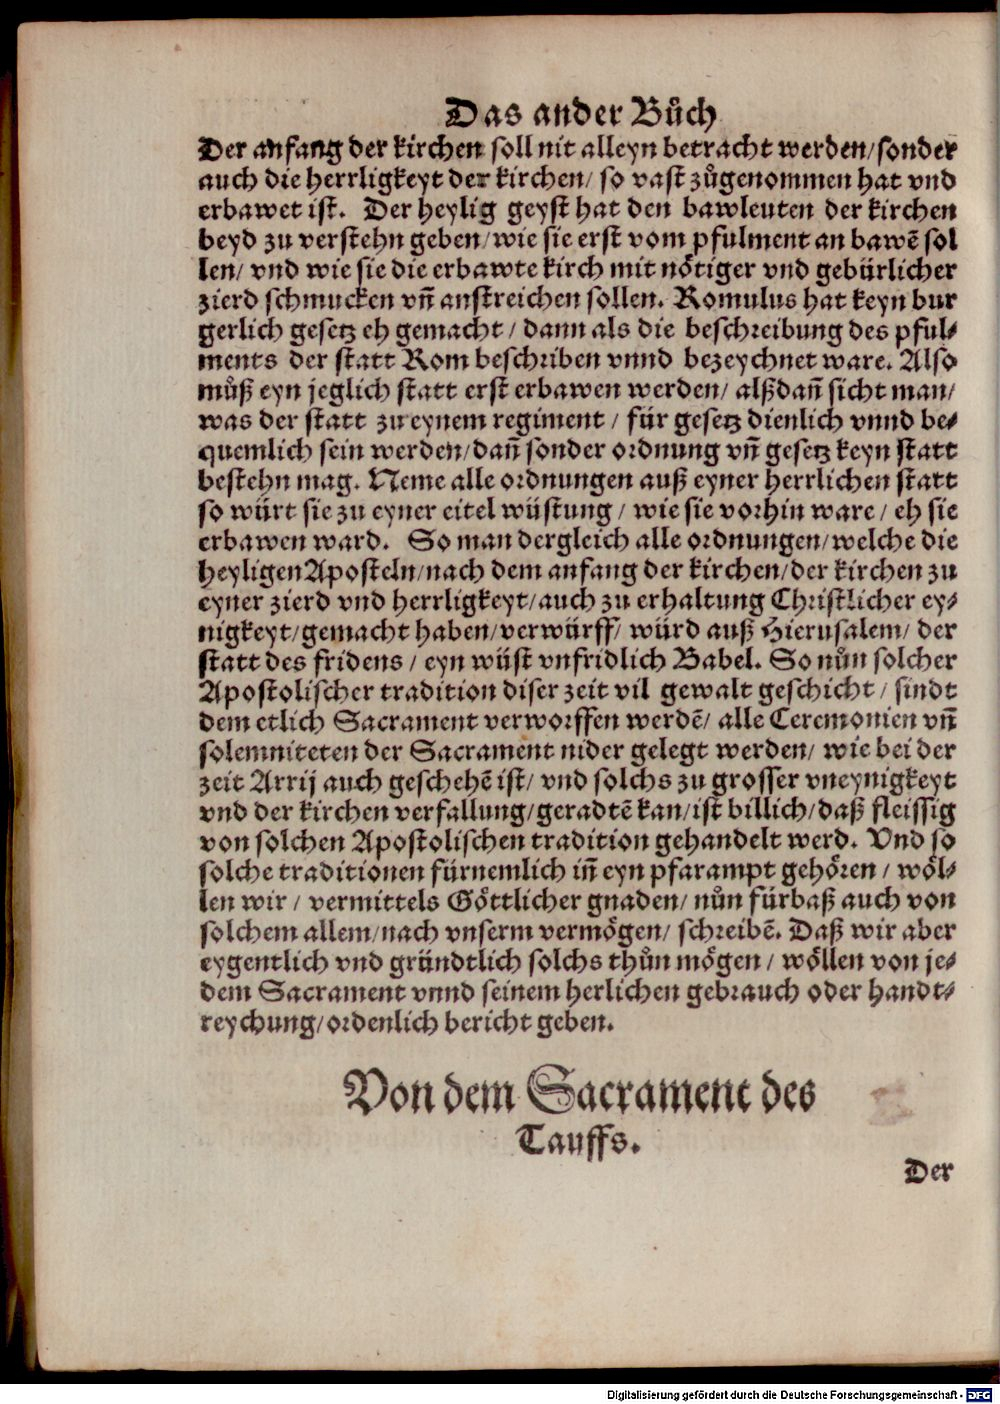 Das ander Bůch
Der anfang der kirchen soll nit alleyn betracht werden/sonder
auch die herrligkeyt der kirchen/ so vast zůgenommen hat vnd
erbawet ist. Der heylig geyst hat den bawleuten der kirchen
beyd zu verstehn geben/wie sie erst vom pfulment an bawē sol
len/ vnd wie sie die erbawte kirch mit nötiger vnd gebürlicher
zierd schmucken vn̄ anstreichen sollen. Romulus hat keyn bur
gerlich gesetz eh gemacht/ dann als die beschreibung des pful-
ments der statt Rom beschriben vnnd bezeychnet ware. Also
můß eyn jeglich statt erst erbawen werden/ alßdan̄ sicht man/
was der statt zu eynem regiment/ für gesetz dienlich vnnd be-
quemlich sein werden/dan̄ sonder ordnung vn̄ gesetz keyn statt
bestehn mag. Neme alle ordnungen auß eyner herrlichen statt
so würt sie zu eyner eitel wüstung/ wie sie vorhin ware/ eh sie
erbawen ward. So man dergleich alle ordnungen/welche die
heyligen Aposteln/nach dem anfang der kirchen/der kirchen zu
eyner zierd vnd herrligkeyt/auch zu erhaltung Christlicher ey-
nigkeyt/gemacht haben/verwürff/ würd auß Hierusalem/ der
statt des fridens/ eyn wüst vnfridlich Babel. So nůn solcher
Apostolischer tradition diser zeit vil gewalt geschicht/ sindt
dem etlich Sacrament verworffen werdē/ alle Ceremonien vn̄
solemniteten der Sacrament nider gelegt werden/ wie bei der
zeit Arrij auch geschehē ist/ vnd solchs zu grosser vneynigkeyt
vnd der kirchen verfallung/geradtē kan/ist billich/daß fleissig
von solchen Apostolischen tradition gehandelt werd. Vnd so
solche traditionen fürnemlich in̄ eyn pfarampt gehören/ wöl-
len wir/ vermittels Göttlicher gnaden/ nůn fürbaß auch von
solchem allem/nach vnserm vermögen/ schreibē. Daß wir aber
eygentlich vnd gründtlich solchs thůn mögen/ wöllen von je-
dem Sacrament vnnd seinem herlichen gebrauch oder handt-
reychung/ordenlich bericht geben.
Von dem Sacrament des
Tauffs.
Der
Digitalisierung gefördert durch die Deutsche Forschungsgemeinschaft - DFG